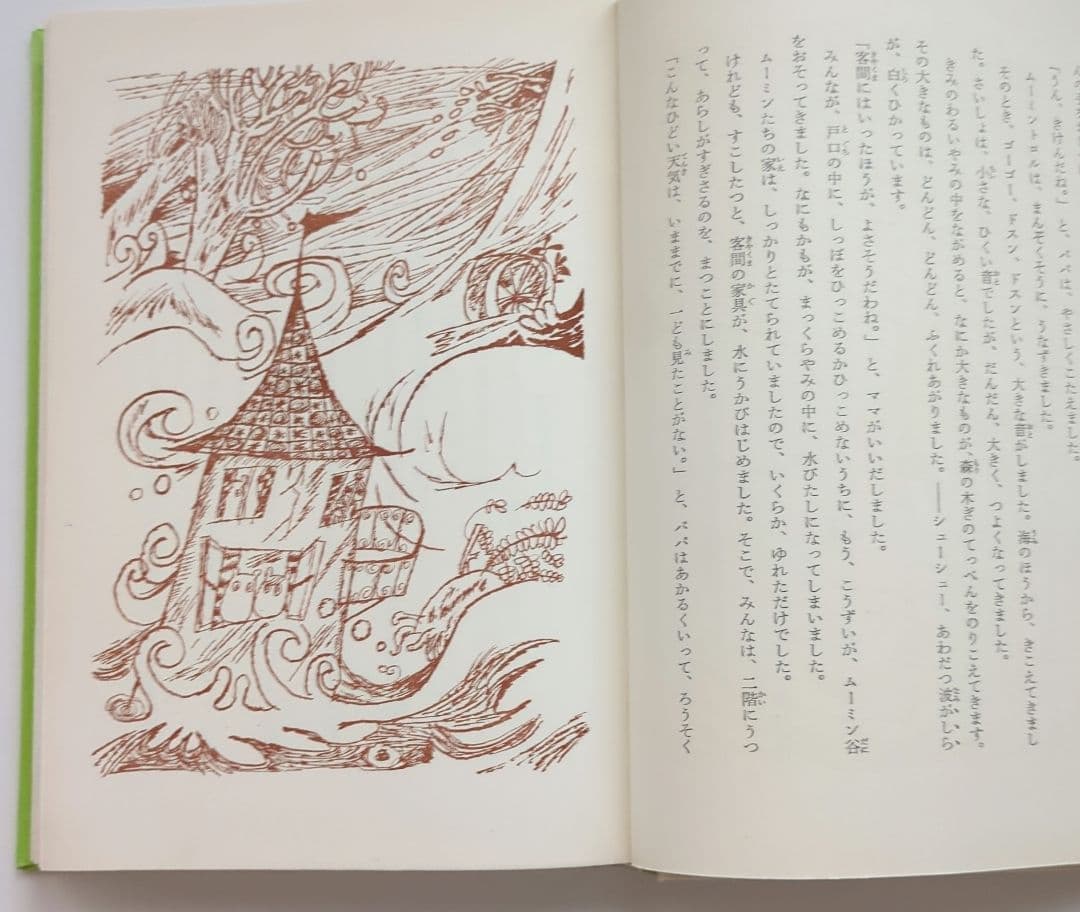 「うん、きけんだね。」と、パパは、やさしくこたえました。
ムーミントロルは、まんぞくそうに、うなずきました。
そのとき、ゴーゴー、ドスン、ドスンという、大きな音がしました。海のほうから、きこえてきまし
た。さいしょは、小さな、ひくい音でしたが、だんだん、大きく、つよくなってきました。
きみのわるいやみの中をながめると、なにか大きなものが、森の木ぎのてっぺんをのりこえてきます。
その大きなものは、どんどん、どんどん、ふくれあがりました。――シューシュー、あわだつ波がしら
が、白くひかっています。
「客間にはいったほうが、よさそうだわね。」と、ママがいいだしました。
みんなが、戸口の中に、しっぽをひっこめるかひっこめないうちに、もう、こうずいが、ムーミン谷
をおそってきました。なにもかもが、まっくらやみの中に、水びたしになってしまいました。
ムーミンたちの家は、しっかりとたてられていましたので、いくらか、ゆれただけでした。
けれども、すこしたつと、客間の家具が、水にうかびはじめました。そこで、みんなは、二階にうつ
って、あらしがすぎさるのを、まつことにしました。
「こんなひどい天気は、いままでに、一ども見たことがない。」と、パパはあかるくいって、ろうそく